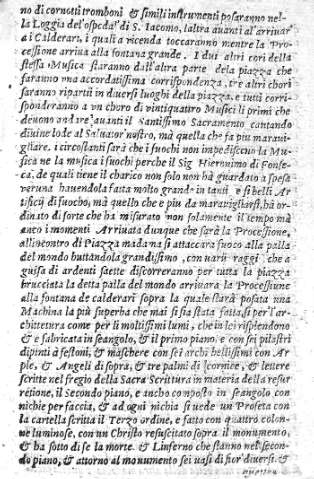 no di cornotti tromboni & simili instrumenti posaranno nel-
la Loggia del'ospedal di S. Iacomo, laltra auanti al arriuar
a i Calderari, i quali a vicenda toccaranno mentre la Pro-
cessione arriua alla fontana grande. I dui altri cori della
stessa Musica staranno dall'altra parte dela piazza che
faranno vna accordatissima corrispondenza, tre altri chori
saranno ripartii in diuersi luoghi della piazza, e tutti corri-
sponderanno a vn choro di vintiquattro Musici li primi che
deuono andare auanti il Santissimo Sacramento cantando
diuine lode al Saluator nostro, mà quella che fa piu maraui-
gliare i circostanti sarà che i fuochi non impediscono la Mu-
sica ne la musica i fuochi perche il Sig Hieronimo di Fonse-
ca, de quali tiene il charico non solo non hà guardato a spesa
veruna hauendola fatta molto grande in tanti e si belli Ar-
tificij di fuocho, mà quello che e piu da marauigliarsi, hà or-
dinato di sorte che ha misurato non solamente il tempo mà
anco i momenti Arriuata dunque che sarà la Processione,
all'incontro di Piazza madama si attaccara fuoco alla palla
del mondo buttandola grandissimo, con varij raggi che a
guisa di ardenti saette discorreranno per tutta la piazza
brucciata la detta palla del mondo arriuara la Processione
alla fontana de calderari sopra la quale sarà posata vna
Machina la più superba che mai si sia stata fatta, si per l'ar-
chittetura come per li moltissimi lumi, che in lei risplendono
& e fabricata in seangolo, & il primo piano, e con sei pilastri
dipinti à festoni, & maschere con sei archi bellissimi con Ar
pie, & Angeli di sopra, & tre palmi di cornice, & lettere
scritte nel fregio della Sacra Scrittura in materia della resur
retione, il secondo piano, e ancho composto in seangolo con
nichie per faccia, & ad ogni nichia si uede un Profeta con
la cartella scritta il Terzo ordine, e fatto con quattro colon-
ne luminose, con un Christo resuscitato sopra il monumento,
& ha sotto di se la morte, & Linferno che stanno nel secon-
do piano, & attorno al monumento sei uasi di fior diuersi &